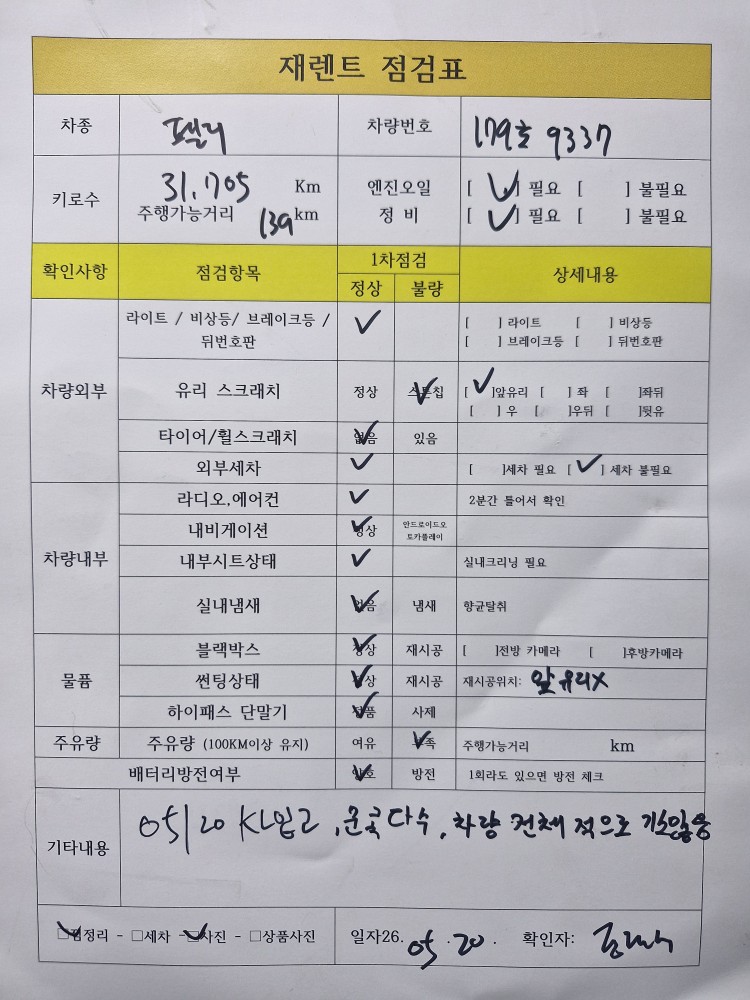 재렌트 점검표
차종 펠리 차량번호 179호 9337
키로수 31,705 Km 엔진오일 [ ✓ ] 필요 [ ] 불필요
주행가능거리 139 km 정 비 [ ✓ ] 필요 [ ] 불필요
확인사항 점검항목 1차점검 상세내용
정상 불량
차량외부 라이트 / 비상등/ 브레이크등 / 뒤번호판 ✓ [ ] 라이트 [ ] 비상등
[ ] 브레이크등 [ ] 뒤번호판
유리 스크래치 정상 스톤칩 ✓ [ ✓ ]앞유리 [ ] 좌 [ ]좌뒤
[ ] 우 [ ]우뒤 [ ]뒷유
타이어/휠스크래치 없음 ✓ 있음
외부세차 ✓ [ ]세차 필요 [ ✓ ] 세차 불필요
차량내부 라디오,에어컨 ✓ 2분간 틀어서 확인
내비게이션 정상 ✓ 안드로이드오
토카플레이
내부시트상태 ✓ 실내크리닝 필요
실내냄새 없음 ✓ 냄새 향균탈취
물품 블랙박스 정상 ✓ 재시공 [ ]전방 카메라 [ ]후방카메라
썬팅상태 정상 ✓ 재시공 재시공위치: 앞유리X
하이패스 단말기 정품 ✓ 사제
주유량 주유량 (100KM이상 유지) 여유 부족 ✓ 주행가능거리 km
배터리방전여부 양호 ✓ 방전 1회라도 있으면 방전 체크
기타내용 05/20 KL입고, 문콕다수, 차량 전체적으로 기스있음
☑짐정리 - □세차 - ☑사진 - □상품사진 일자26. 05 . 20 . 확인자: